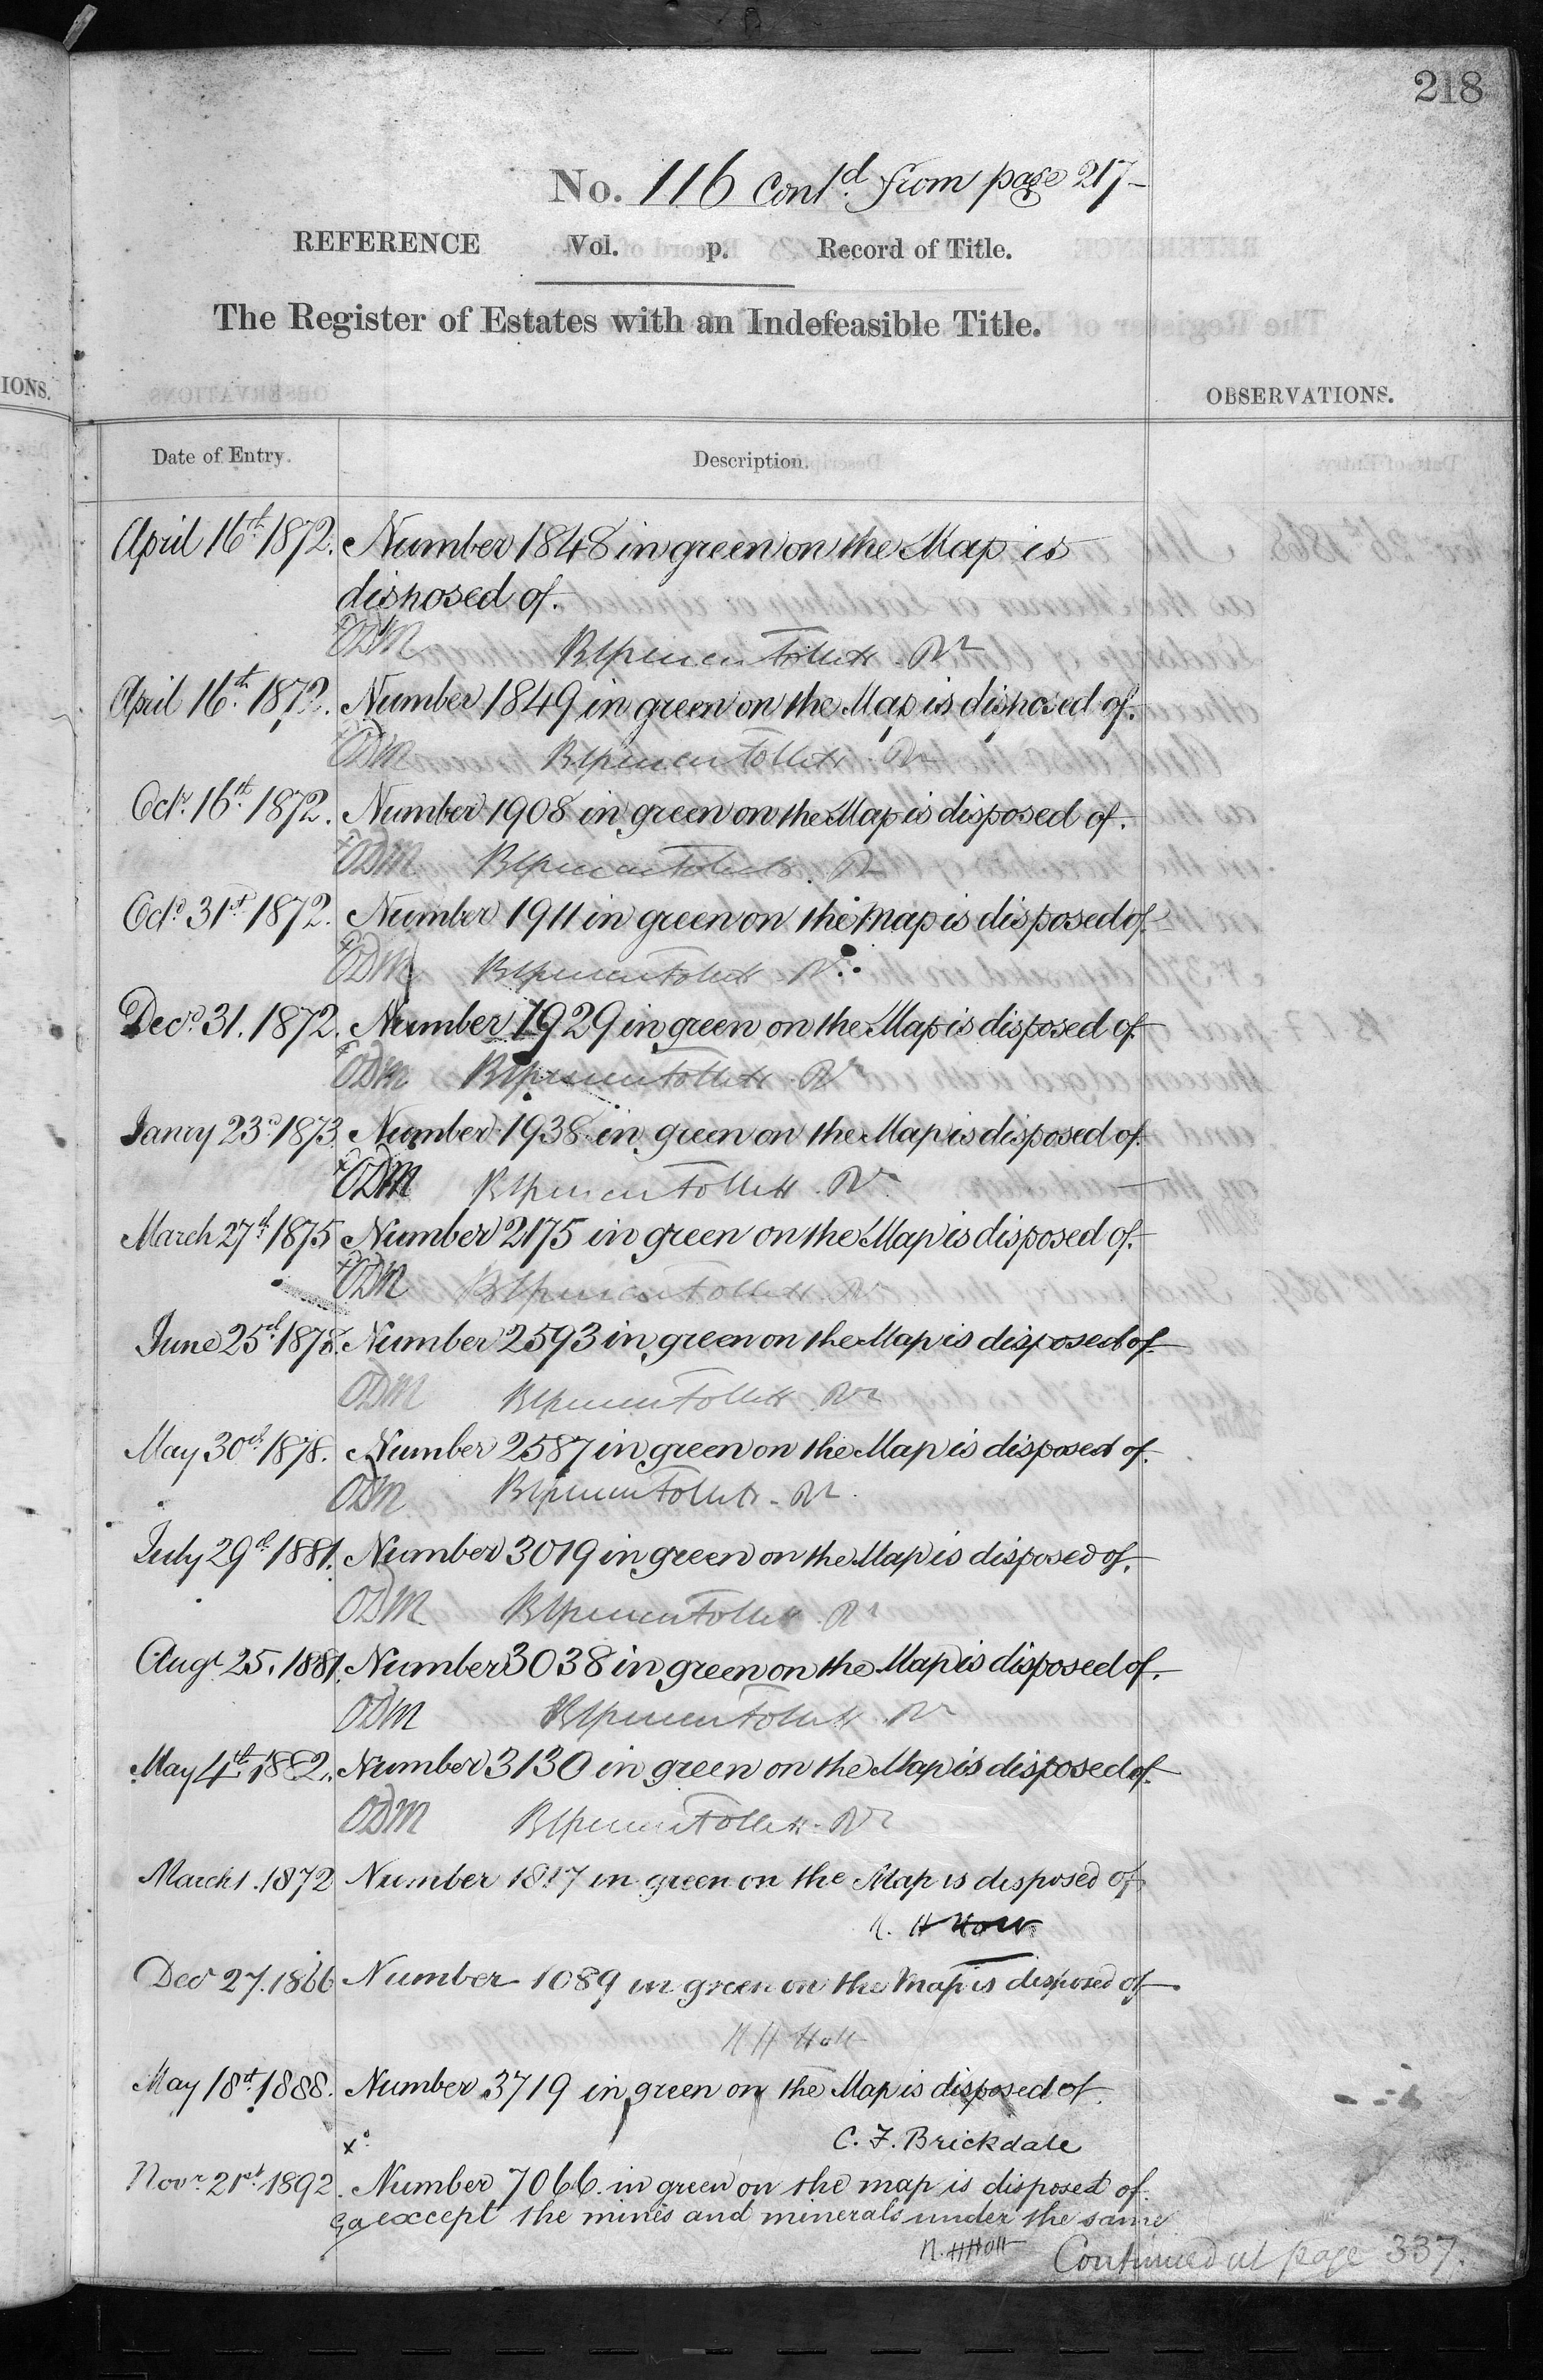 218
No. 116 Contd. from page 217
REFERENCE Vol. p. Record of Title.
The Register of Estates with an Indefeasible Title.
IONS.
OBSERVATIONS.
Date of Entry. Description.
April 16th 1872. Number 1848 in green on the Map is
disposed of.
ODM
April 16th 1872. Number 1849 in green on the Map is disposed of.
ODM
Octr. 16th 1872. Number 1908 in green on the Map is disposed of.
ODM
Octr 31st 1872. Number 1911 in green on the Map is disposed of
ODM
Decr 31. 1872. Number 1929 in green on the Map is disposed of
ODM
Janry 23d 1873. Number 1938 in green on the Map is disposed of
ODM
March 27th 1875 Number 2175 in green on the Map is disposed of.
ODM
June 25th 1878. Number 2593 in green on the Map is disposed of
ODM
May 30th 1878. Number 2587 in green on the Map is disposed of.
ODM
July 29th 1881. Number 3019 in green on the Map is disposed of.
ODM
Augt 25. 1881. Number 3038 in green on the Map is disposed of.
ODM
May 4th 1882. Number 3130 in green on the Map is disposed of.
ODM
March 1. 1872 Number 1817 in green on the Map is disposed of
Decr 27. 1866 Number 1089 in green on the Map is disposed of
R H Holt
May 18th 1888. Number 3719 in green on the Map is disposed of.
C. F. Brickdale
Novr 21st 1892. Number 7066 in green on the map is disposed of
except the mines and minerals under the same
R. H Holt
Continued at page 337.